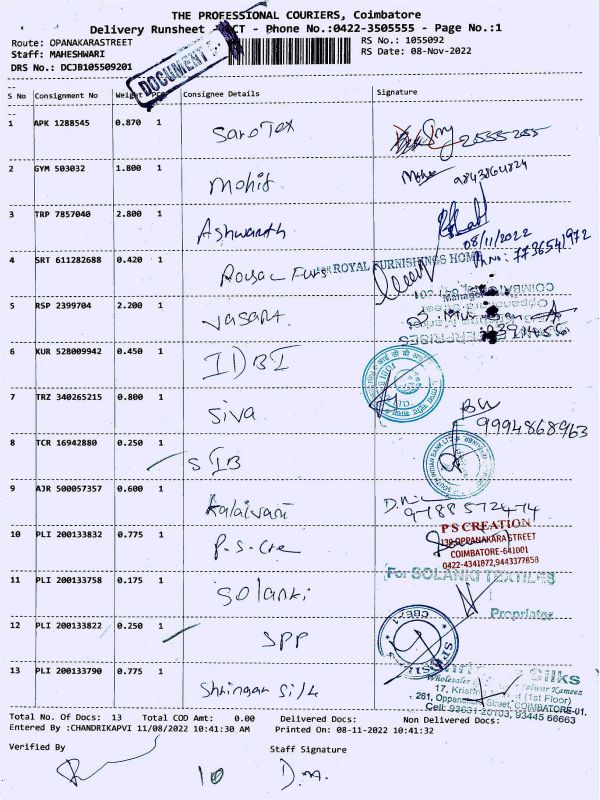 THE PROFESSIONAL COURIERS, Coimbatore
Delivery Runsheet - CT - Phone No.:0422-3505555 - Page No.:1
Route: OPANAKARASTREET RS No.: 1055092
Staff: MAHESHWARI RS Date: 08-Nov-2022
DRS No.: DCJB105509201
DOCUMENT
S No Consignment No Weight PCS Consignee Details Signature
1 APK 1288545 0.870 1 SaroTex
2 GYM 503032 1.800 1 mohit 9843864824
3 TRP 7857040 2.800 1 Ashwanth
08/11/2022
Ph No: 7736541972
4 SRT 611282688 0.420 1 Royal Furs For ROYAL FURNISHINGS HOME
Manager
5 RSP 2399704 2.200 1 Vasant
6 KUR 528009942 0.450 1 IDBI
7 TRZ 340265215 0.800 1 Siva
9994868963
8 TCR 16942880 0.250 1 SIB
SOUTH INDIAN BANK LTD
9 AJR 500057357 0.600 1 Kalaivani
9188572474
10 PLI 200133832 0.775 1 P.S.Cre
P S CREATION
139 OPPANAKARA STREET
COIMBATORE-641001
0422-4341872,9443377658
11 PLI 200133758 0.175 1 Solanki
For SOLANKI TEXTILES
Proprietor
12 PLI 200133822 0.250 1 SPP
CBE-1
13 PLI 200133790 0.775 1 Shringar Silk
Silks
Wholesaler Salwar Kameez
17, Krishna (1st Floor)
261, Oppanakara Street, COIMBATORE-01.
Cell: 93631 20103, 93445 66663
Total No. Of Docs: 13 Total COD Amt: 0.00 Delivered Docs: Non Delivered Docs:
Entered By :CHANDRIKAPVI 11/08/2022 10:41:30 AM Printed On: 08-11-2022 10:41:32
Verified By Staff Signature
10 D.m.